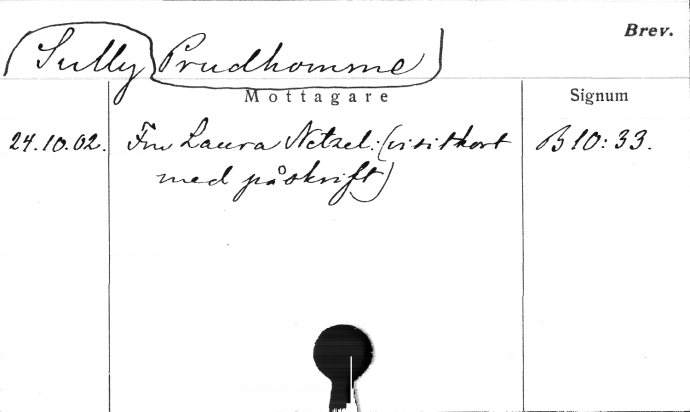 Brev.
Sully Prudhomme
Mottagare
Signum
24.10.02. Fru Laura Netzel: (visitkort B 10:33.
med påskrift)